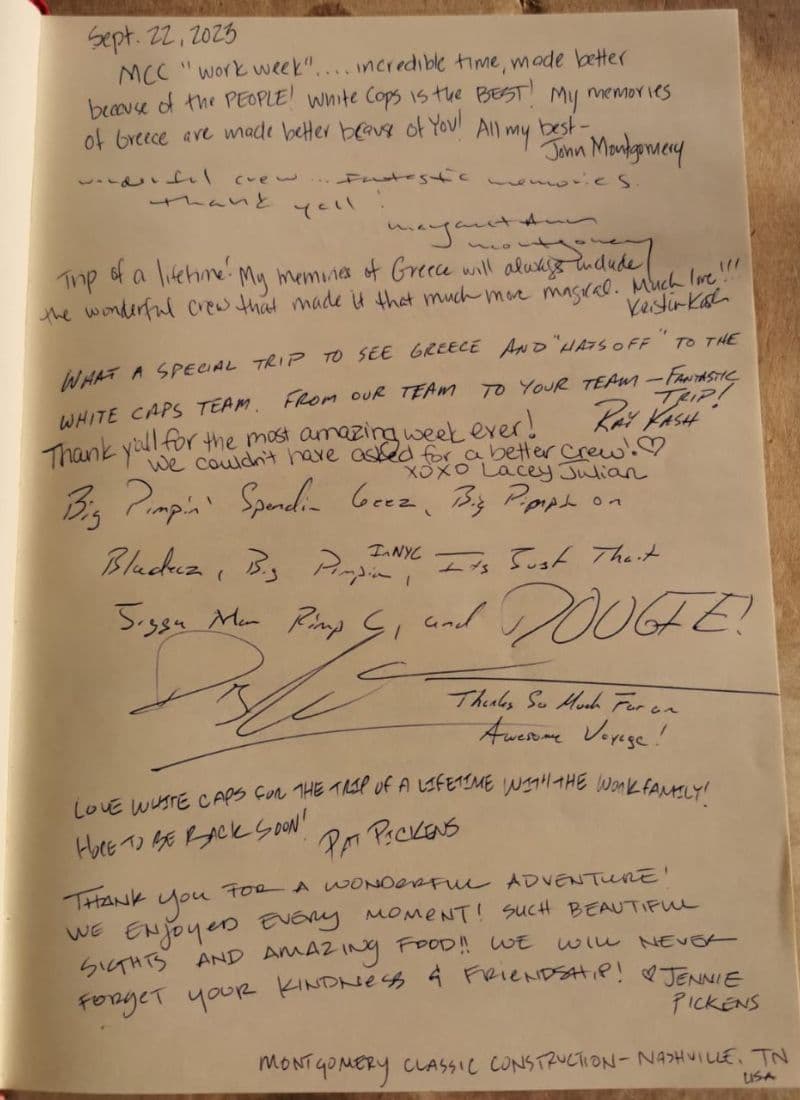 Sept. 22, 2023
MCC "work week".... incredible time, made better
because of the PEOPLE! White Caps is the BEST! My memories
of Greece are made better beause of You! All my best-
John Montgomery
wonderful crew... Fantastic memories.
Thank yall!
Margaret Ann
Montgomery
Trip of a lifetime! My memories of Greece will always include
the wonderful crew that made it that much more magical. Much love!!!
Kristin Kash
WHAT A SPECIAL TRIP TO SEE GREECE AND "HATS OFF" TO THE
WHITE CAPS TEAM. FROM OUR TEAM TO YOUR TEAM - FANTASTIC
TRIP!
RAY KASH
Thank y'all for the most amazing week ever!
We couldn't have asked for a better crew! ♡
XOXO Lacey Julian
Big Pimpin' Spendin Geez, Big Pimpin on
Bladeez, Big Pimpin, In NYC Its Just That
Jigga Man Pimp C, and DOUGIE!
Thanks So Much For an
Awesome Voyage!
LOVE WHITE CAPS FOR THE TRIP OF A LIFETIME WITH THE WORK FAMILY!
HOPE TO BE BACK SOON!
PAT PICKENS
THANK YOU FOR A WONDERFUL ADVENTURE!
WE ENJOYED EVERY MOMENT! SUCH BEAUTIFUL
SIGTHTS AND AMAZING FOOD!! WE WILL NEVER
FORGET YOUR KINDNESS & FRIENDSHIP! ♡ JENNIE
PICKENS
MONTGOMERY CLASSIC CONSTRUCTION - NASHVILLE, TN
USA